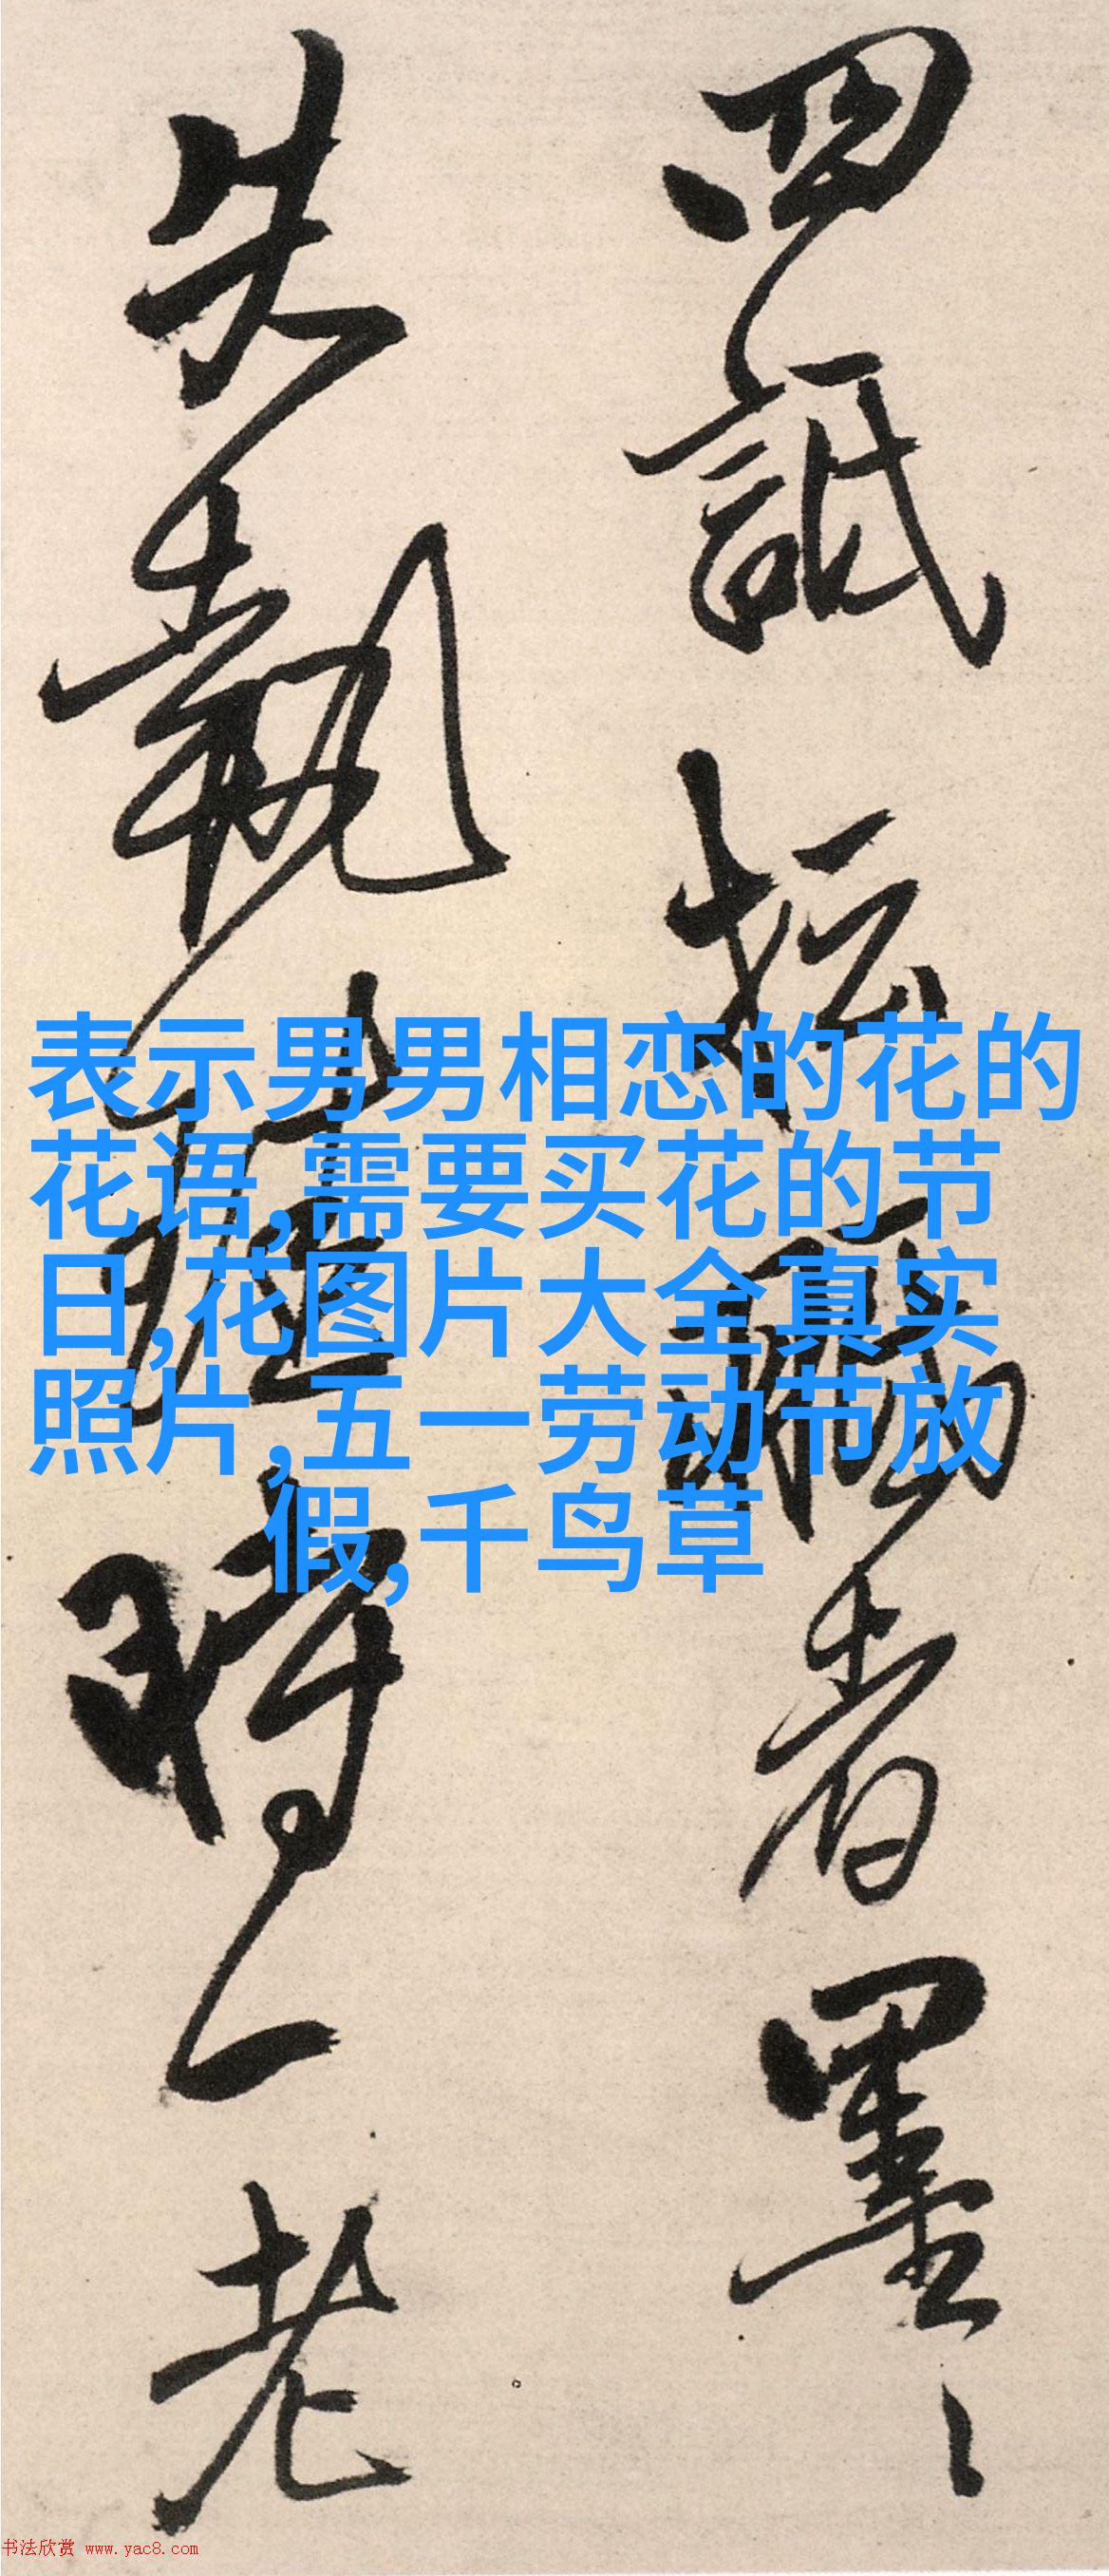 四詆坛
者墨
失執
時
老
表示男男相恋的花的
花语,需要买花的节
日,花图片大全真实
照片,五一劳动节放
假,千鸟草
书法欣赏 www.yac8.com